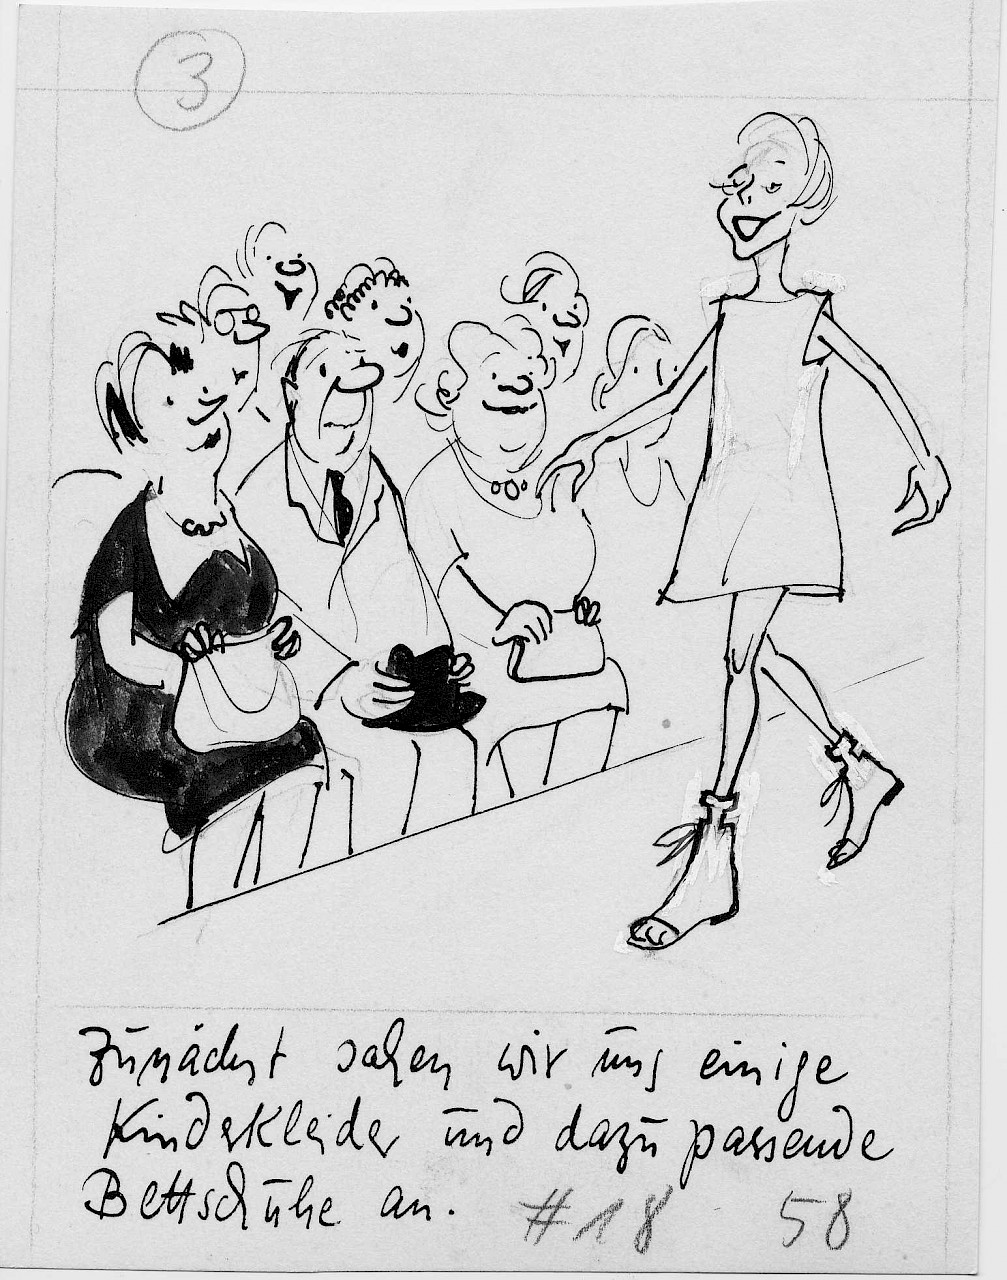 3
Zunächst sahen wir uns einige
Kinderkleider und dazu passende
Bettschuhe an.
#18 58